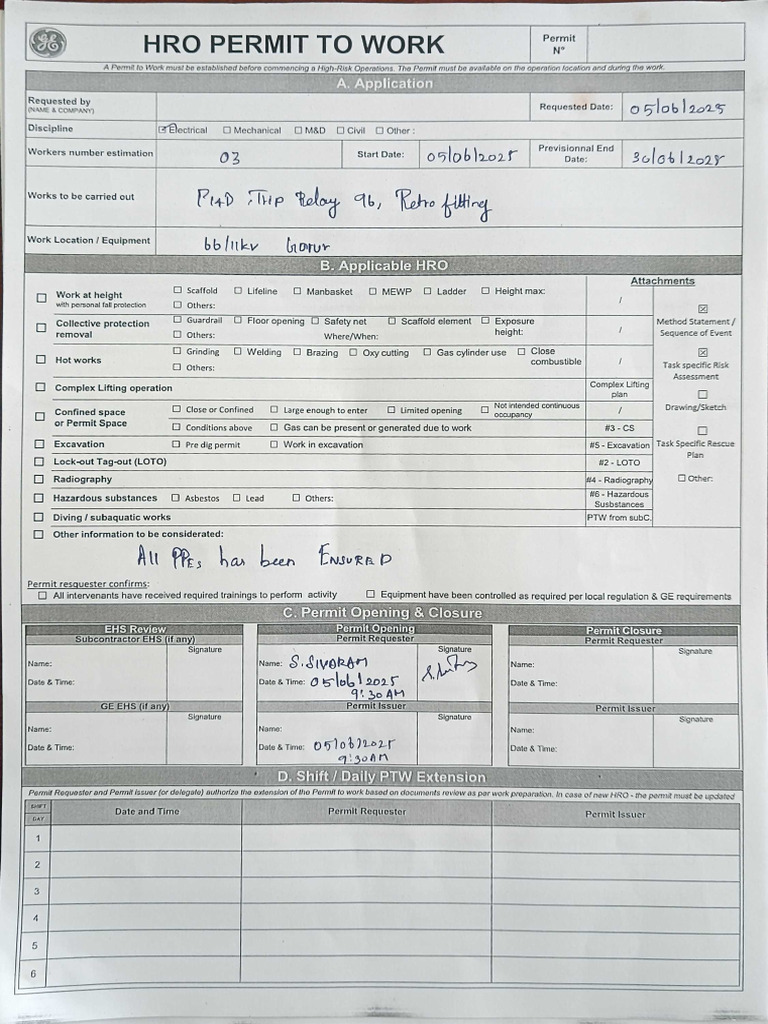 GE
HRO PERMIT TO WORK
Permit N°
A Permit to Work must be established before commencing a High-Risk Operations. The Permit must be available on the operation location and during the work.
A. Application
Requested by
(NAME & COMPANY)
Requested Date: 05/06/2025
Discipline ☑ Electrical ☐ Mechanical ☐ M&D ☐ Civil ☐ Other :
Workers number estimation 03 Start Date: 05/06/2025 Previsionnal End Date: 30/06/2025
Works to be carried out Trip Relay 96, Retro fitting
Work Location / Equipment 66/11kv
B. Applicable HRO
Attachments
☐ Work at height ☐ Scaffold ☐ Lifeline ☐ Manbasket ☐ MEWP ☐ Ladder ☐ Height max: /
with personal fall protection ☐ Others:
☐ Collective protection removal ☐ Guardrail ☐ Floor opening ☐ Safety net ☐ Scaffold element ☐ Exposure height: /
☐ Others: Where/When:
☐ Hot works ☐ Grinding ☐ Welding ☐ Brazing ☐ Oxy cutting ☐ Gas cylinder use ☐ Close combustible /
☐ Others:
☐ Complex Lifting operation Complex Lifting plan
☐ Confined space or Permit Space ☐ Close or Confined ☐ Large enough to enter ☐ Limited opening ☐ Not intended continuous occupancy /
☐ Conditions above ☐ Gas can be present or generated due to work #3 - CS
☐ Excavation ☐ Pre dig permit ☐ Work in excavation #5 - Excavation
☐ Lock-out Tag-out (LOTO) #2 - LOTO
☐ Radiography #4 - Radiography
☐ Hazardous substances ☐ Asbestos ☐ Lead ☐ Others: #6 - Hazardous Susbstances
☐ Diving / subaquatic works PTW from subC.
☒ Method Statement / Sequence of Event
☒ Task specific Risk Assessment
☐ Drawing/Sketch
☐ Task Specific Rescue Plan
☐ Other:
☐ Other information to be considered:
All PPEs has been ENSURED
Permit resquester confirms:
☐ All intervenants have received required trainings to perform activity ☐ Equipment have been controlled as required per local regulation & GE requirements
C. Permit Opening & Closure
EHS Review
Subcontractor EHS (if any)
Signature
Name:
Date & Time:
GE EHS (if any)
Signature
Name:
Date & Time:
Permit Opening
Permit Requester
Signature
Name: S.SIVARAM
Date & Time: 05/06/2025
9:30 AM
Permit Issuer
Signature
Name:
Date & Time: 05/06/2025
9:30AM
Permit Closure
Permit Requester
Signature
Name:
Date & Time:
Permit Issuer
Signature
Name:
Date & Time:
D. Shift / Daily PTW Extension
Permit Requester and Permit Issuer (or delegate) authorize the extension of the Permit to work based on documents review as per work preparation. In case of new HRO - the permit must be updated
SHIFT
DAY
Date and Time Permit Requester Permit Issuer
1
2
3
4
5
6